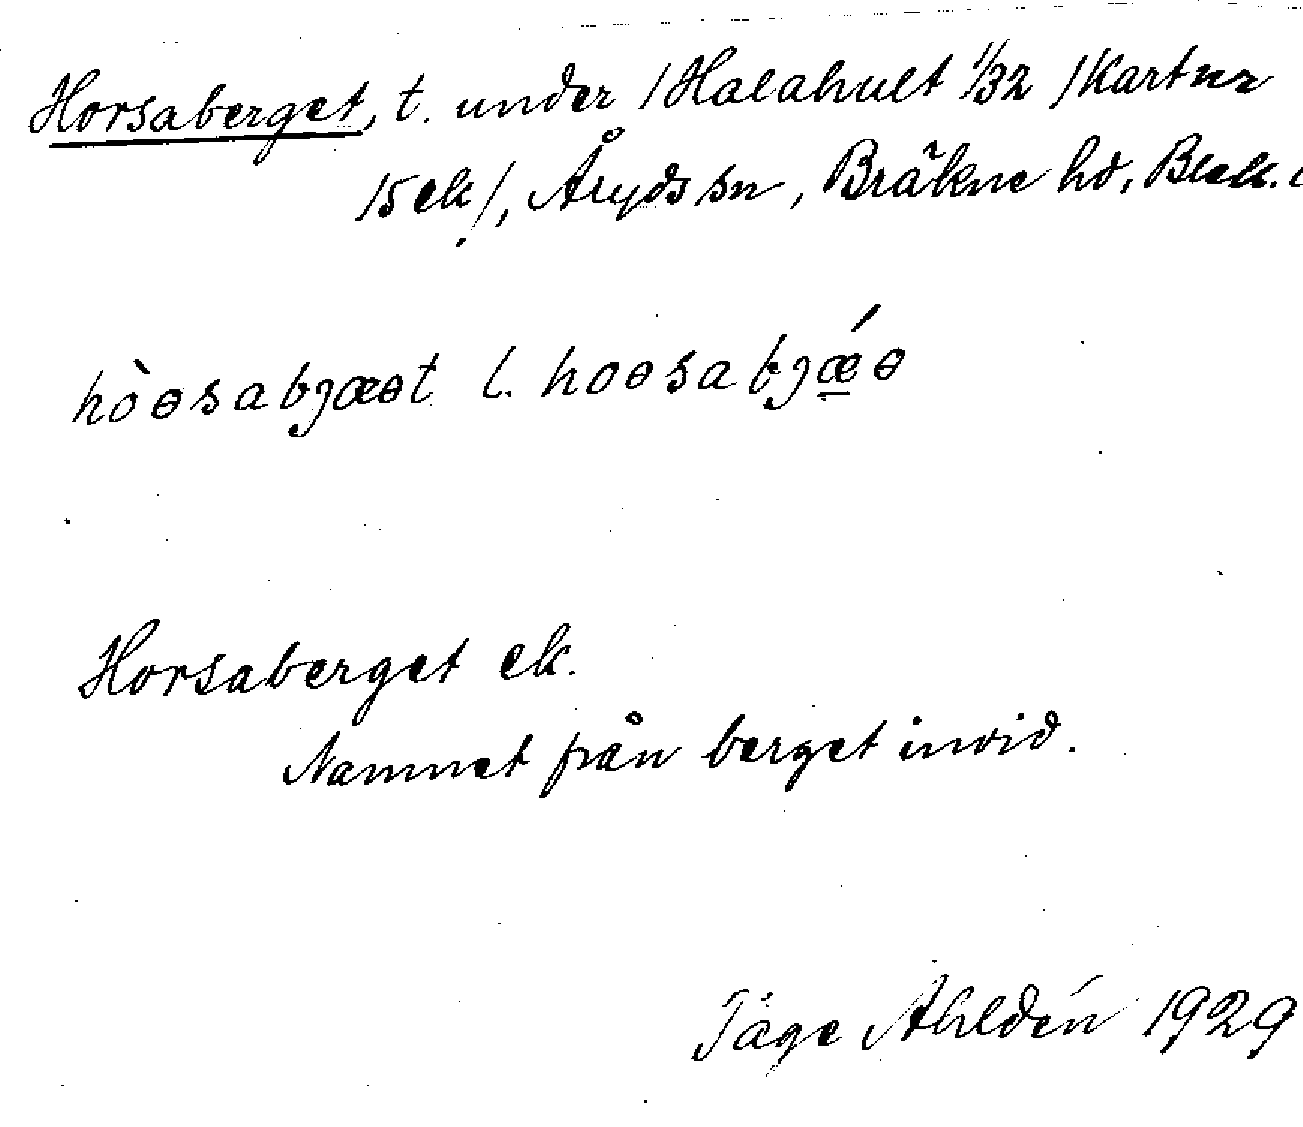 Horsaberget, t. under /Halahult 1/32 /Kartnr
15 ek/, Åryds sn, Bräkne hd, Blek.
hòɵsabjæɵt l. hoɵsabjǽɵ
Horsaberget ek.
Namnet från berget invid.
Tage Ahldén 1929